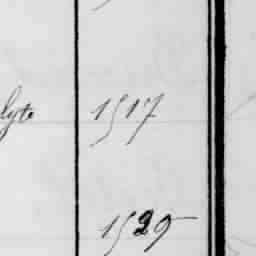 lyte 1517
1529